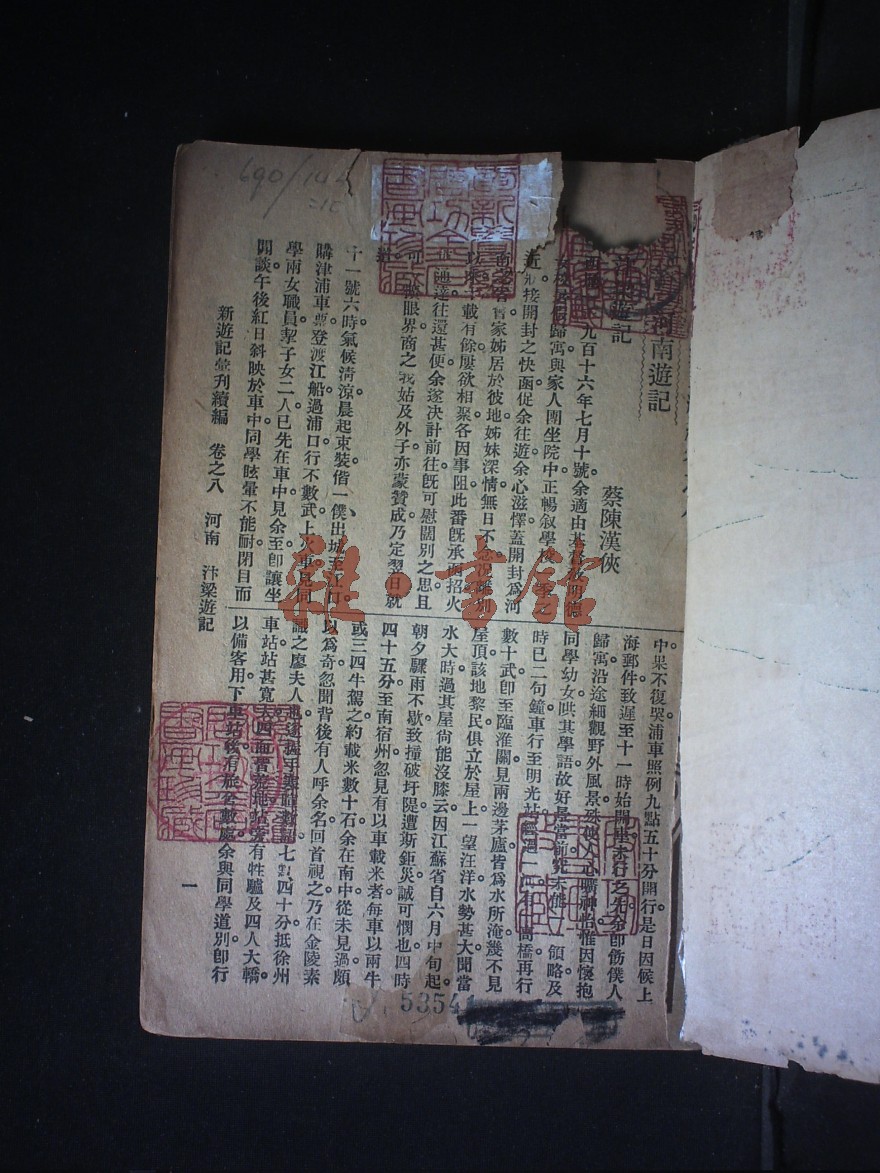 河南遊記
遊記
蔡陳漢俠
九百十六年七月十號余適由基督教明德
歸寓與家人團坐院中正暢叙學校
近 接開封之快函促余往遊余心滋懌蓋開封爲河
家姊居於彼地姊妹深情無日不念況離別
載有餘屢欲相聚各因事阻此番旣承函招火
往還甚便余遂决計前往旣可慰闊別之思且
可 眼界商之我姑及外子亦蒙贊成乃定翌日就
十一號六時氣候清涼晨起束裝偕一僕出城至江
購津浦車票登渡江船過浦口行不數武上火車見同
學兩女職員挈子女二人已先在車中見余至卽讓坐
閒談午後紅日斜映於車中同學眩暈不能耐閉目而
中果不復哭浦車照例九點五十分開行是日因候上
海郵件致遲至十一時始開車未行之先余卽飭僕人
歸寓沿途細觀野外風景殊使人心曠神怡惟因懷抱
同學幼女哄其學語故好景當前究未能一一領略及
時已二句鐘車行至明光站 橋再行
數十武卽至臨淮關見兩邊茅廬皆爲水所淹幾不見
屋頂該地黎民俱立於屋上一望汪洋水勢甚大聞當
水大時過其屋尙能沒膝云因江蘇省自六月中旬起
朝夕驟雨不歇致撞破圩隄遭斯鉅災誠可憫也四時
四十五分至南宿州忽見有以車載米者每車以兩牛
或三四牛駕之約載米數十石余在南中從未見過頗
以爲奇忽聞背後有人呼余名回首視之乃在金陵素
識之廖夫人也遂握手與 七點四十分抵徐州
車站站甚寬大四面 有牲驢及四人大轎
以備客用下車站後有 余與同學道別卽行
新遊記彙刊續編 卷之八 河南 汴梁遊記
一
53541
690/14
雜·書館